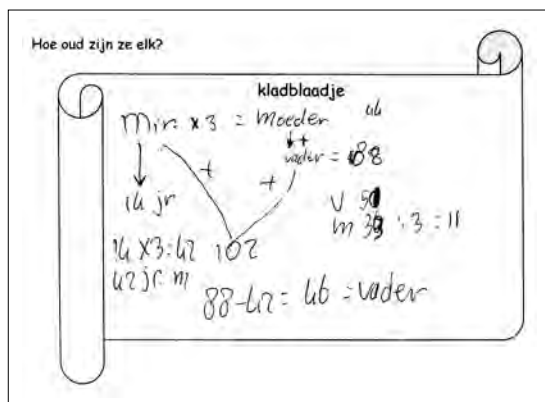 Hoe oud zijn ze elk?
kladblaadje
Mir. x 3 = Moeder
46
+
vader = 88
+
+
14 jr
V 51
m 33 : 3 = 11
14 x 3 = 42
102
42 jr m
88-42 = 46 = vader